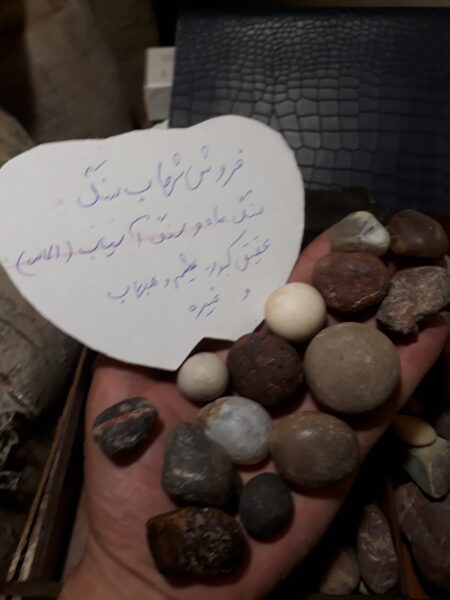 فروش شهاب سنگ
سنگ ماه و سنگ آفتاب (الماس)
عقیق کبود - یشم و شهاب
و غیره